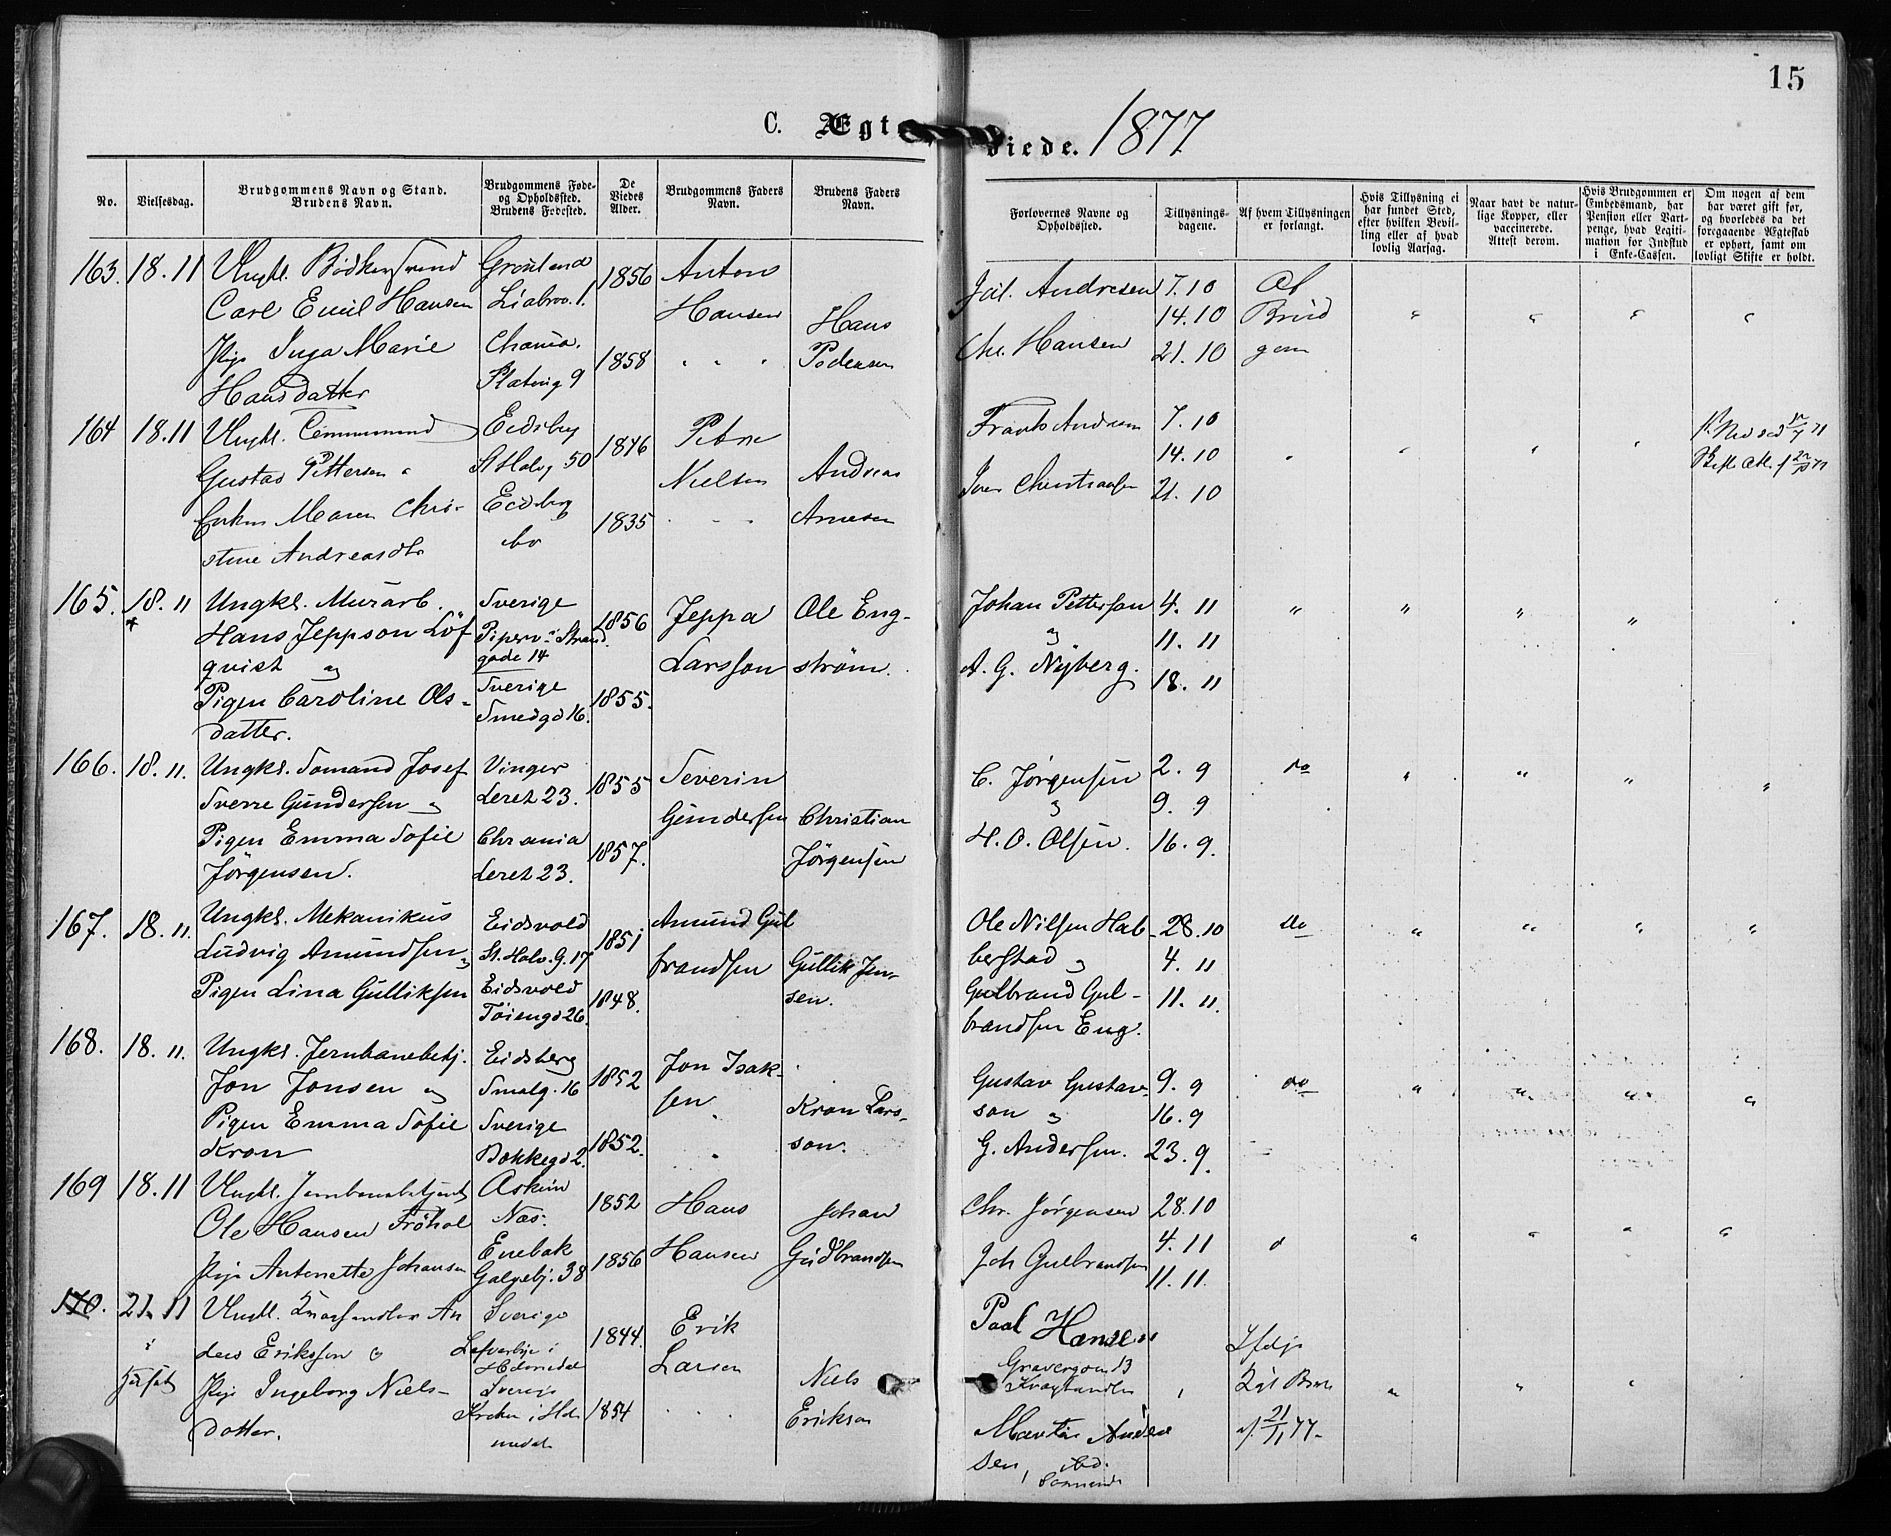 15
C. Ægte
viede. 1877
No.
Vielsesdag.
Brudgommens Navn og Stand.
Brudens Navn.
Brudgommens Føde-
og Opholdssted.
Brudens Fødested.
De
Viedes
Alder.
Brudgommens Faders
Navn.
Brudens Faders
Navn.
Forlovernes Navne og
Opholdssted.
Tillysnings-
dagene.
Af hvem Tillysningen
er forlangt.
Hvis Tillysning ei
har fundet Sted,
efter hvilken Bevil-
ling eller af hvad
lovlig Aarsag.
Naar havt de natur-
lige Kopper, eller
vaccinerede.
Attest derom.
Hvis Brudgommen er
Embedsmand, har
Pension eller Vart-
penge, hvad Legiti-
mation for Indskud
i Enke-Cassen.
Om nogen af dem
har været gift før,
og hvorledes da det
foregaaende Ægteskab
er ophørt, samt om
lovligt Skifte er holdt.
163. 18.11 Ungkl. Bødkersvend Grønland 1856 Anton
Carl Emil Hansen Liabrov. 1. Hansen Hans
Pige Inga Marie Chania. 1858 " " " Pedersen
Hansdatter Platoug 9
Jul. Andresen 7.10 Af
14.10 Brud " " " "
Chr. Hansen 21.10 gom
164 18.11 Ungkl. Tømmermand Eidsberg 1846 Peter
Gustav Pettersen St Halvg 50 Nielsen Andreas
Enken Maren Chri- Eidsberg 1835 " " " Arnesen
stine Andreasdtr
Frants Andresen 7.10
14.10 " " " "
Iver Christiansen 21.10
165. 18.11 Ungkl. Murarb. Sverige 1856 Jeppa Ole Eng-
Hans Jeppson Löf Piperv. Strand Larsson strøm.
qvist og gade 14
Pigen Caroline Ols- Sverige 1855.
datter. Smedgd 16.
Johan Pettersson 4.11 " " " "
og 11.11
A. G. Nyberg. 18.11
166. 18.11. Ungkl. Sømand Josef Vinger 1855 Severin
Sverre Gundersen og Leret 23. Gundersen Christian
Pigen Emma Sofie Chrania 1857. Jørgensen
Jørgensen. Leret 23.
C. Jørgensen 2.9 do " " " "
og 9.9
H. O. Olsen. 16.9.
167. 18.11. Ungkl. Mekanikus Eidsvold 1851 Amund Gul
Ludvig Amundsen og St. Halv. G. 17 brandsen Gullik Jen-
Pigen Lina Gulliksen Eidsvold 1848. sen.
Tøiengd 26.
Ole Nilsen Hab- 28.10 do " " " "
berstad og 4.11
Gulbrand Gul- 11.11.
brandsen Eng.
168. 18.11. Ungkl. Jernbanebetj. Eidsberg 1852 Jon Isak-
Jon Jonsen og Smalg. 16 sen Kron Lars-
Pigen Emma Sofie Sverige 1852. son.
Kron Bakkegd 2.
Gustav Gustav- 9.9 do " " " "
son og 16.9
G. Andersen. 23.9.
169 18.11 Ungkl. Jernbanebetjent Askim 1852 Hans Johan
Ole Hansen Frøhol Næs. Hansen Gudbrandsen
Pige Antonette Johansen Enebak 1856
Galgebj. 38
Chr. Jørgensen 28.10
4.11 d " " " "
Joh Gulbrandsen 11.11.
170. 21.11 Ungkl. An Sverige 1844 Erik
ders Eriksson og Larsen Niels
Pige Ingeborg Niels- Sverige 1854 " " " Erikson
datter.
Paal Hansen
Gravergaden 13
Ifølge
Kgl Bev.
af 21/11 77.
Martin Ander
sen, ibd.